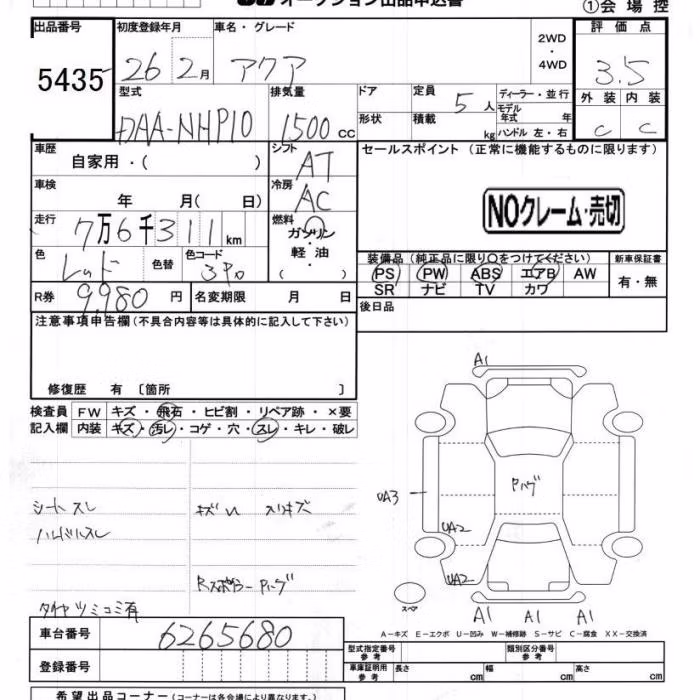 オークション出品申込書
①会場控
出品番号 初度登録年月 車名・グレード 評価点
5435 26 2月 アクア 2WD・4WD 3.5
型式 排気量 ドア 定員 5人 ディーラー・並行 外装 内装
DAA-NHP10 1500cc 形状 積載 kg モデル年式 年 ハンドル 左・右 C C
車歴 自家用・( ) シフト AT セールスポイント (正常に機能するものに限ります)
車検 年 月( 日) 冷房 AC
NOクレーム・売切
走行 7万6千311km 燃料 ガソリン・軽油・( )
色 レッド 色替 色コード 3P0
装備品 (純正品に限り○をつけてください) 新車保証書
PS PW ABS エアB AW 有・無
SR ナビ TV カワ
R券 9,980円 名変期限 月 日 後日品
注意事項申告欄 (不具合内容等は具体的に記入して下さい)
修復歴 有 〔箇所 〕
検査員記入欄 FW キズ・飛石・ヒビ割・リペア跡・×要
内装 キズ・汚レ・コゲ・穴・スレ・キレ・破レ
A1
UA3
Pハゲ
UA2
UA2
シートスレ
ハンドルスレ
スリキズ
Rスポイラー Pハゲ
タイヤツミコミ有
スペア
A1 A1 A1
A-キズ E-エクボ U-凹み W-補修跡 S-サビ C-腐食 XX-交換済
車台番号 6265680
型式指定番号 参考 類別区分番号 参考
登録番号
車庫証明用 参考 長さ cm 幅 cm 高さ cm
希望出品コーナー (コーナーは各会場により異なります。)